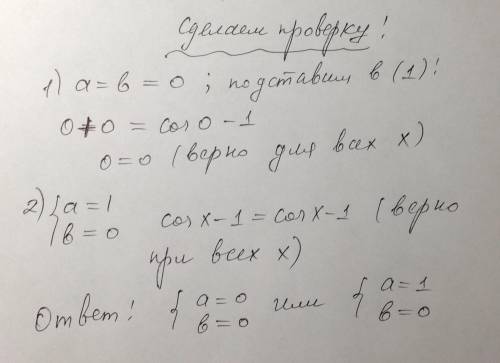 Сделаем проверку!
1) a = в = 0 ; подставим в (1)!
0 + 0 = cos 0 - 1
0 = 0 (верно для всех x)
2) { a = 1 в = 0 cos x - 1 = cos x - 1 (верно
при всех x)
Ответ! { a = 0 в = 0 или { a = 1 в = 0